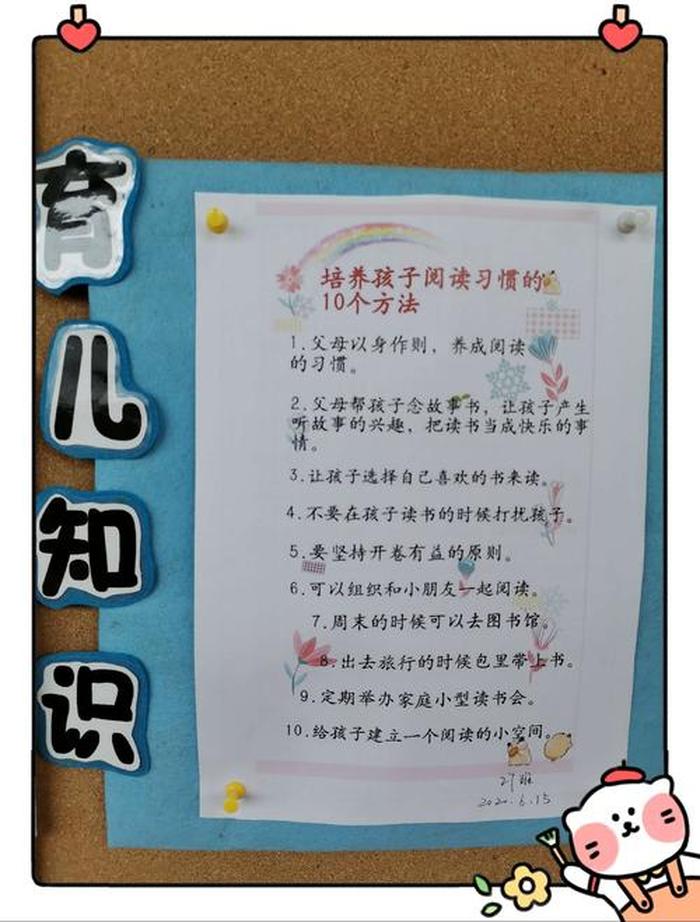 育儿知识
培养孩子阅读习惯的
10个方法
1.父母以身作则，养成阅读
的习惯。
2.父母帮孩子念故事书，让孩子产生
听故事的兴趣，把读书当成快乐的事
情。
3.让孩子选择自己喜欢的书来读。
4.不要在孩子读书的时候打扰孩子。
5.要坚持开卷有益的原则。
6.可以组织和小朋友一起阅读。
7.周末的时候可以去图书馆。
8.出去旅行的时候包里带上书。
9.定期举办家庭小型读书会。
10.给孩子建立一个阅读的小空间。
2020.6.15